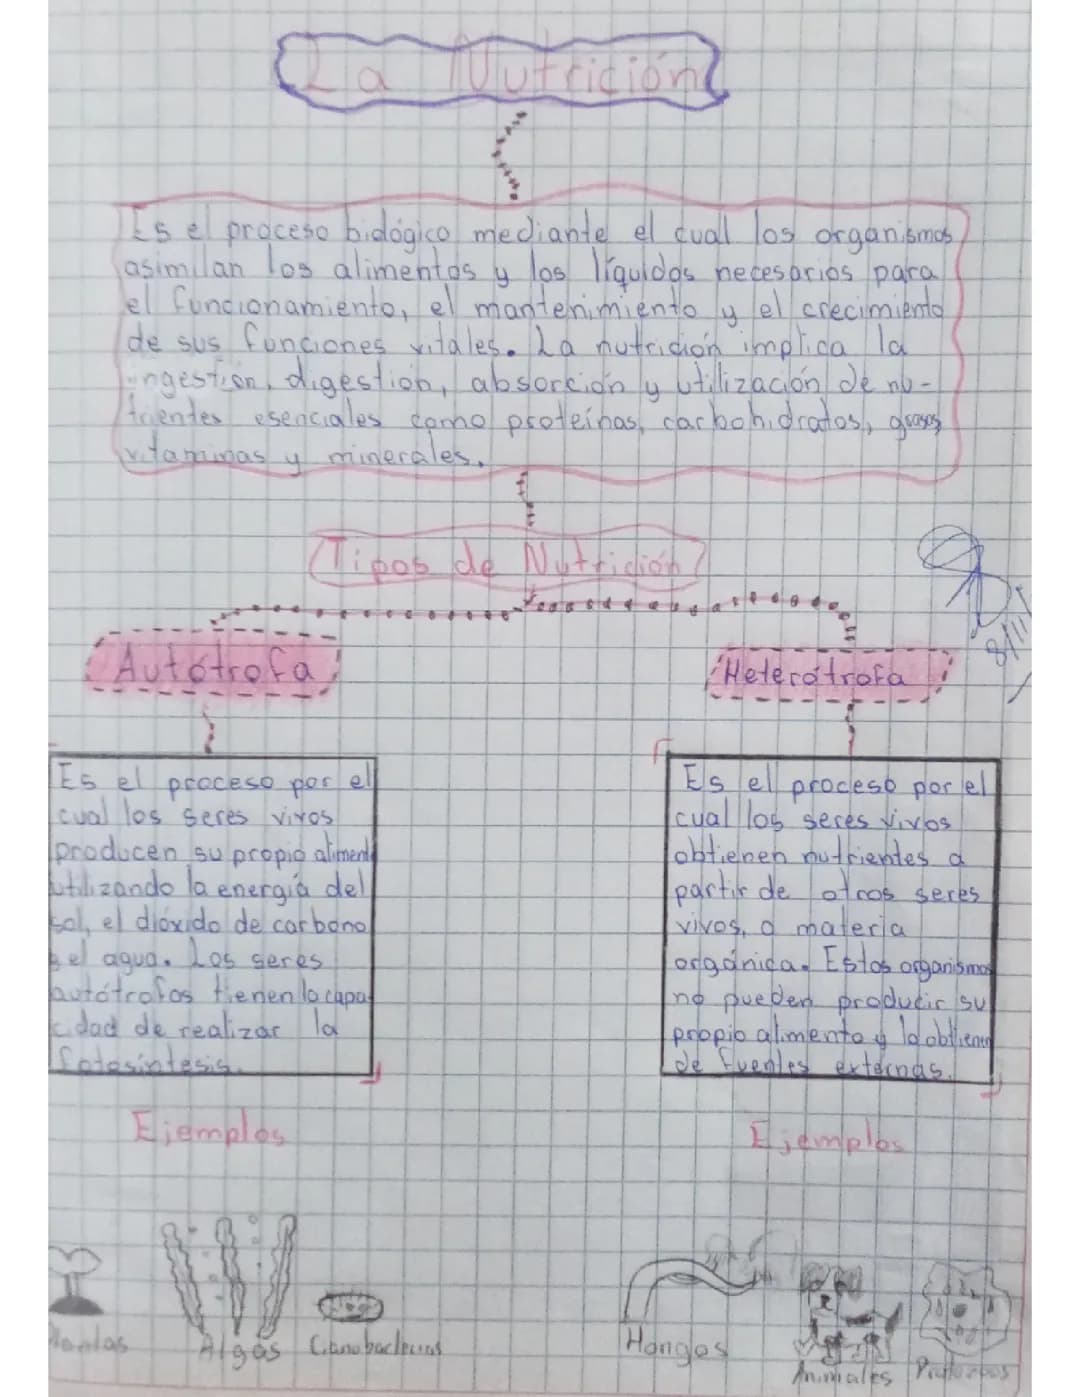 La Nutrición
Es el proceso biológico mediante el cual los organismos
asimilan los alimentos y los líquidos necesarios para
el funcionamiento, el mantenimiento y el crecimiento
de sus funciones vitales. La nutrición implica la
ingestión, digestión, absorción y utilización de nu-
trientes esenciales como proteínas, carbohidratos, grasas
vitaminas y minerales.
Tipos de Nutrición
Autótrofa
Es el proceso por el
cual los seres vivos
producen su propio aliment
utilizando la energía del
sol, el dióxido de carbono
y el agua. Los seres
autótrofos tienen la capa-
cidad de realizar la
fotosíntesis.
Ejemplos
Plantas
Algas
Cianobacterias
Heterótrofa
Es el proceso por el
cual los seres vivos
obtienen nutrientes a
partir de otros seres
vivos, o materia
orgánica. Estos organismos
no pueden producir su
propio alimento y lo obtienen
de fuentes externas.
Ejemplos
Hongos
Animales
Protozoos
8/11